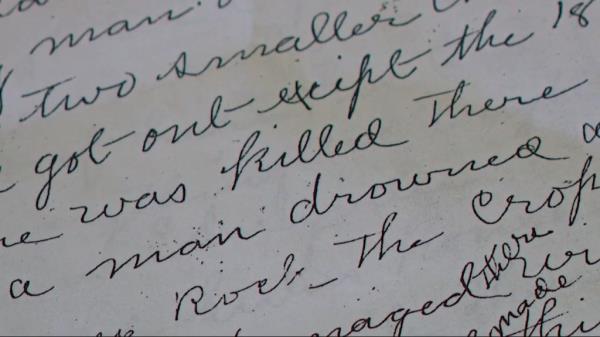 man
two smaller
got out exipt the 18
was killed there
a man drowned
Rock_ The Crop
there
made